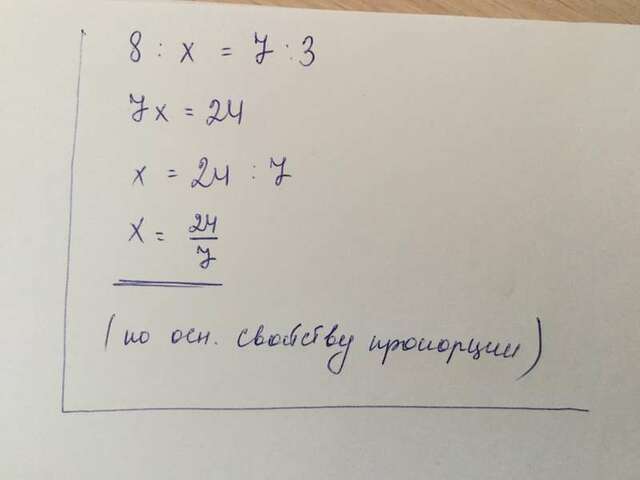 8 : x = 7 : 3
7x = 24
x = 24 : 7
x = 24/7
(по осн. свойству пропорции)